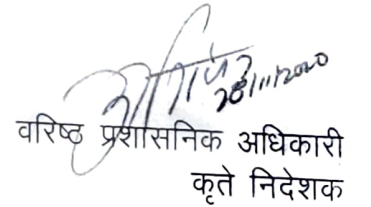 28/11/2020
वरिष्ठ प्रशासनिक अधिकारी
कृते निदेशक